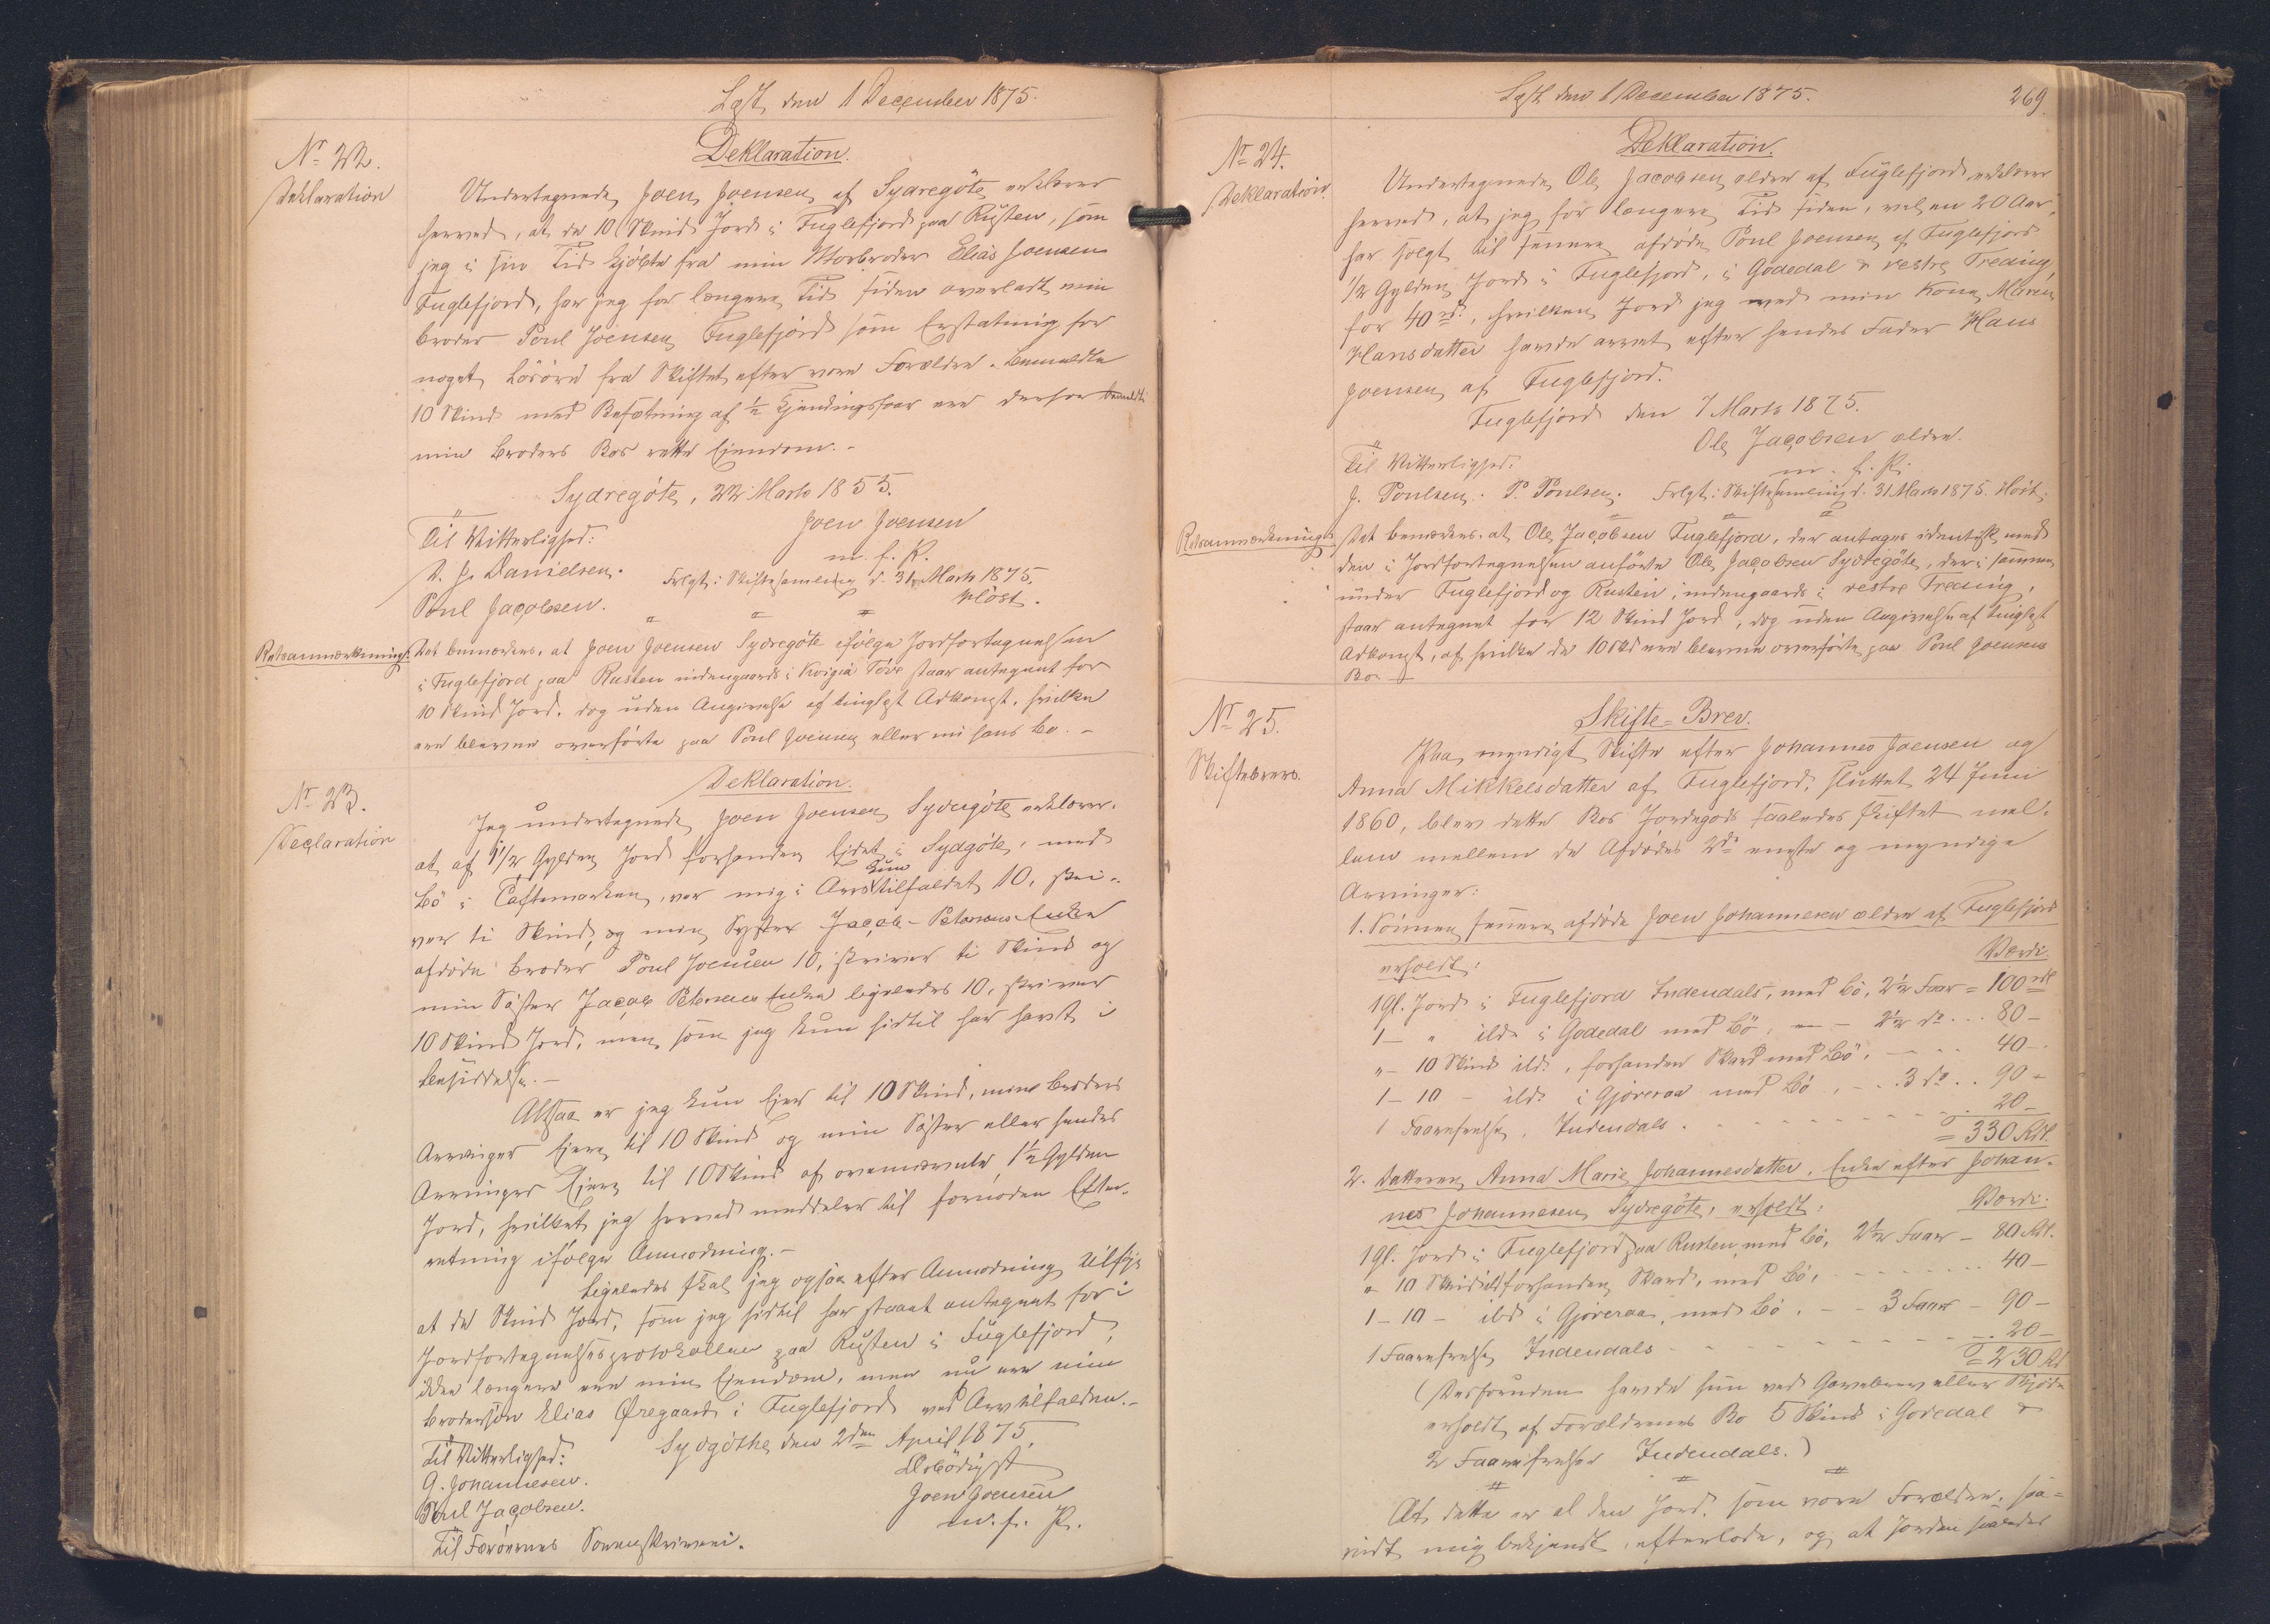 Lqst, den 1 December 1875.
No 22.
Deklaration
Deklaration.
Undertegnede Joen Joensen af Sydregöte erklærer
herved, at de 10 Skind Jord i Fuglefjord paa Rusten, som
jeg i sin Tid kjöbte fra min Morbroder Elias Joensen
Fuglefjord, har jeg for længere Tid siden overladt min
Broder Poul Joensen Fuglefjord som Erstatning for
noget Lösöre fra Skiftet efter vore Forældre. Bemeldte
10 Skind med Besætning af ½ Gjendingsfaar ere derfor bemeldte
min Broders Bos rette Eiendom. -
Sydregöte, 22 Marts 1855.
Joen Joensen
m. f. P.
Til Vitterlighed:
D. J. Danielsen.
Poul Jacobsen.
Frlgt: Skiftesamling d. 31 Marts 1875.
Höst.
Retsanmærkning:
Det bemærkes, at Joen Joensen Sydregöte ifölge Jordfortegnelsen
i Fuglefjord paa Rusten indengaards i Kvigia Töve staar antegnet for
10 Skind Jord, dog uden Angivelse af tinglyst Adkomst, hvilke
ere blevne overförte paa Poul Joensen eller nu hans Bo. -
No 23.
Declaration
Deklaration.
Jeg undertegnede Joen Joensen Sydregöte erklærer,
at af 1½ Gylden Jord forhenden lidet i Sydgöte, med
Bö i Toftemarken, var mig i Arv kun tilfaldet 10, skri-
ver ti Skind, og min Syster Jacob Petersens Enke
afdöde Broder Poul Joensen 10, skriver ti Skind og
min Söster Jacob Petersens Enke ligeledes 10, skriver
10 Skind Jord, men som jeg kun hidtil har havt i
Besiddelse. -
Altsaa er jeg kun Eier til 10 Skind, min Broders
Arvinger Eiere til 10 Skind og min Söster eller hendes
Arvinger Eiere til 10 Skind af ovennævnte 1½ Gylden
Jord, hvilket jeg herved meddeler til fornöden Efter-
retning ifölge Anmodning. -
Ligeledes skal jeg ogsaa efter Anmodning tilföje
at de Skind Jord, som jeg hidtil har staaet antegnet for i
Jordfortegnelsesprotokollen paa Rusten i Fuglefjord,
ikke længere ere min Eiendom, men nu ere min
Brodersön Elias Øregaard i Fuglefjord ved Arv tilfalden. -
Sydgöthe, den 2den April 1875,
Til Vitterlighed:
G. Johannesen.
Poul Jacobsen.
Ærbödigst
Joen Joensen
m. f. P.
Til Færöernes Sorenskriveri.
Lqst, den 1 December 1875.
269
No 24.
Deklaration.
Deklaration.
Undertegnede Ole Jacobsen ældre af Fuglefjord erklærer
herved, at jeg for længere Tid siden, vel en 20 Aar,
har solgt til senere afdöde Poul Joensen af Fuglefjord
½ Gylden Jord i Fuglefjord, i Godedal & vestre Treding,
for 40 rd., hvilken Jord jeg med min Kone Maren
Hansdatter havde arvet efter hendes Fader Hans
Joensen af Fuglefjord.
Fuglefjord den 7 Marts 1875.
Ole Jacobsen ældre.
m. f. P.
Til Vitterlighed:
J. Poulsen. P. Poulsen. Frlgt: Skiftesamling d. 31 Marts 1875. Höst.
Retsanmærkning:
Det bemærkes, at Ole Jacobsen Fuglefjord, der antages identisk med
den i Jordfortegnelsen anförte Ole Jacobsen Sydregöte, der i samme
under Fuglefjord og Rusten, indengaards i vestre Treding,
staar antegnet for 12 Skind Jord, dog uden Angivelse af tinglyst
Adkomst, af hvilke de 10 Skd ere blevne overförte paa Poul Joensens
Bo. -
No 25.
Skiftebrev.
Skifte-Brev.
Paa myndigt Skifte efter Johannes Joensen og
Anna Mikkelsdatter af Fuglefjord, sluttet 24 Juni
1860, blev dette Bos Jordegods saaledes skiftet mel-
lem mellem de Afdödes 2de eneste og myndige
Arvinger:
1. Sönnen senere afdöde Joen Johannesen ældre af Fuglefjord
erholdt: Værdi.
1 Gl. Jord i Fuglefjord Indendals, med Bö, 2½ Faar = 100 rdl
1 - " ibd. i Godedal med Bö, - - 2½ do ... 80 -
" - 10 Skind ibd., forhenden Skard med Bö, - .. 40 -
1 - 10 - ibd. i Gjöveraa med Bö, - .. 3 do .. 90 -
1 Faarefrelse, Indendals. - - - - - - - 20 -
= 330 Rdl.
2. Datteren Anna Marie Johannesdatter, Enke efter Johan-
nes Johannesen Sydregöte, erholdt: Værdi:
1 Gl. Jord i Fuglefjord paa Rusten, med Bö, 2½ Faar - 80 Rdl.
" 10 Skind ibd forhenden Skard, med Bö, - - - - - 40 -
1 - 10 - ibd i Gjöveraa, med Bö. - - 3 Faar - 90 -
1 Faarefrelse Indendals - - - - - - - 20 -
= 230 Rd
(Desforuden havde hun ved Gavebrev eller Skjöde
erholdt af Forældrenes Bo 5 Skind i Godedal &
2 Faarefrelser Indendals.)
At dette er al den Jord, som vore Forældre, saa-
vidt mig bekjendt, efterlode, og at Jorden saaledes